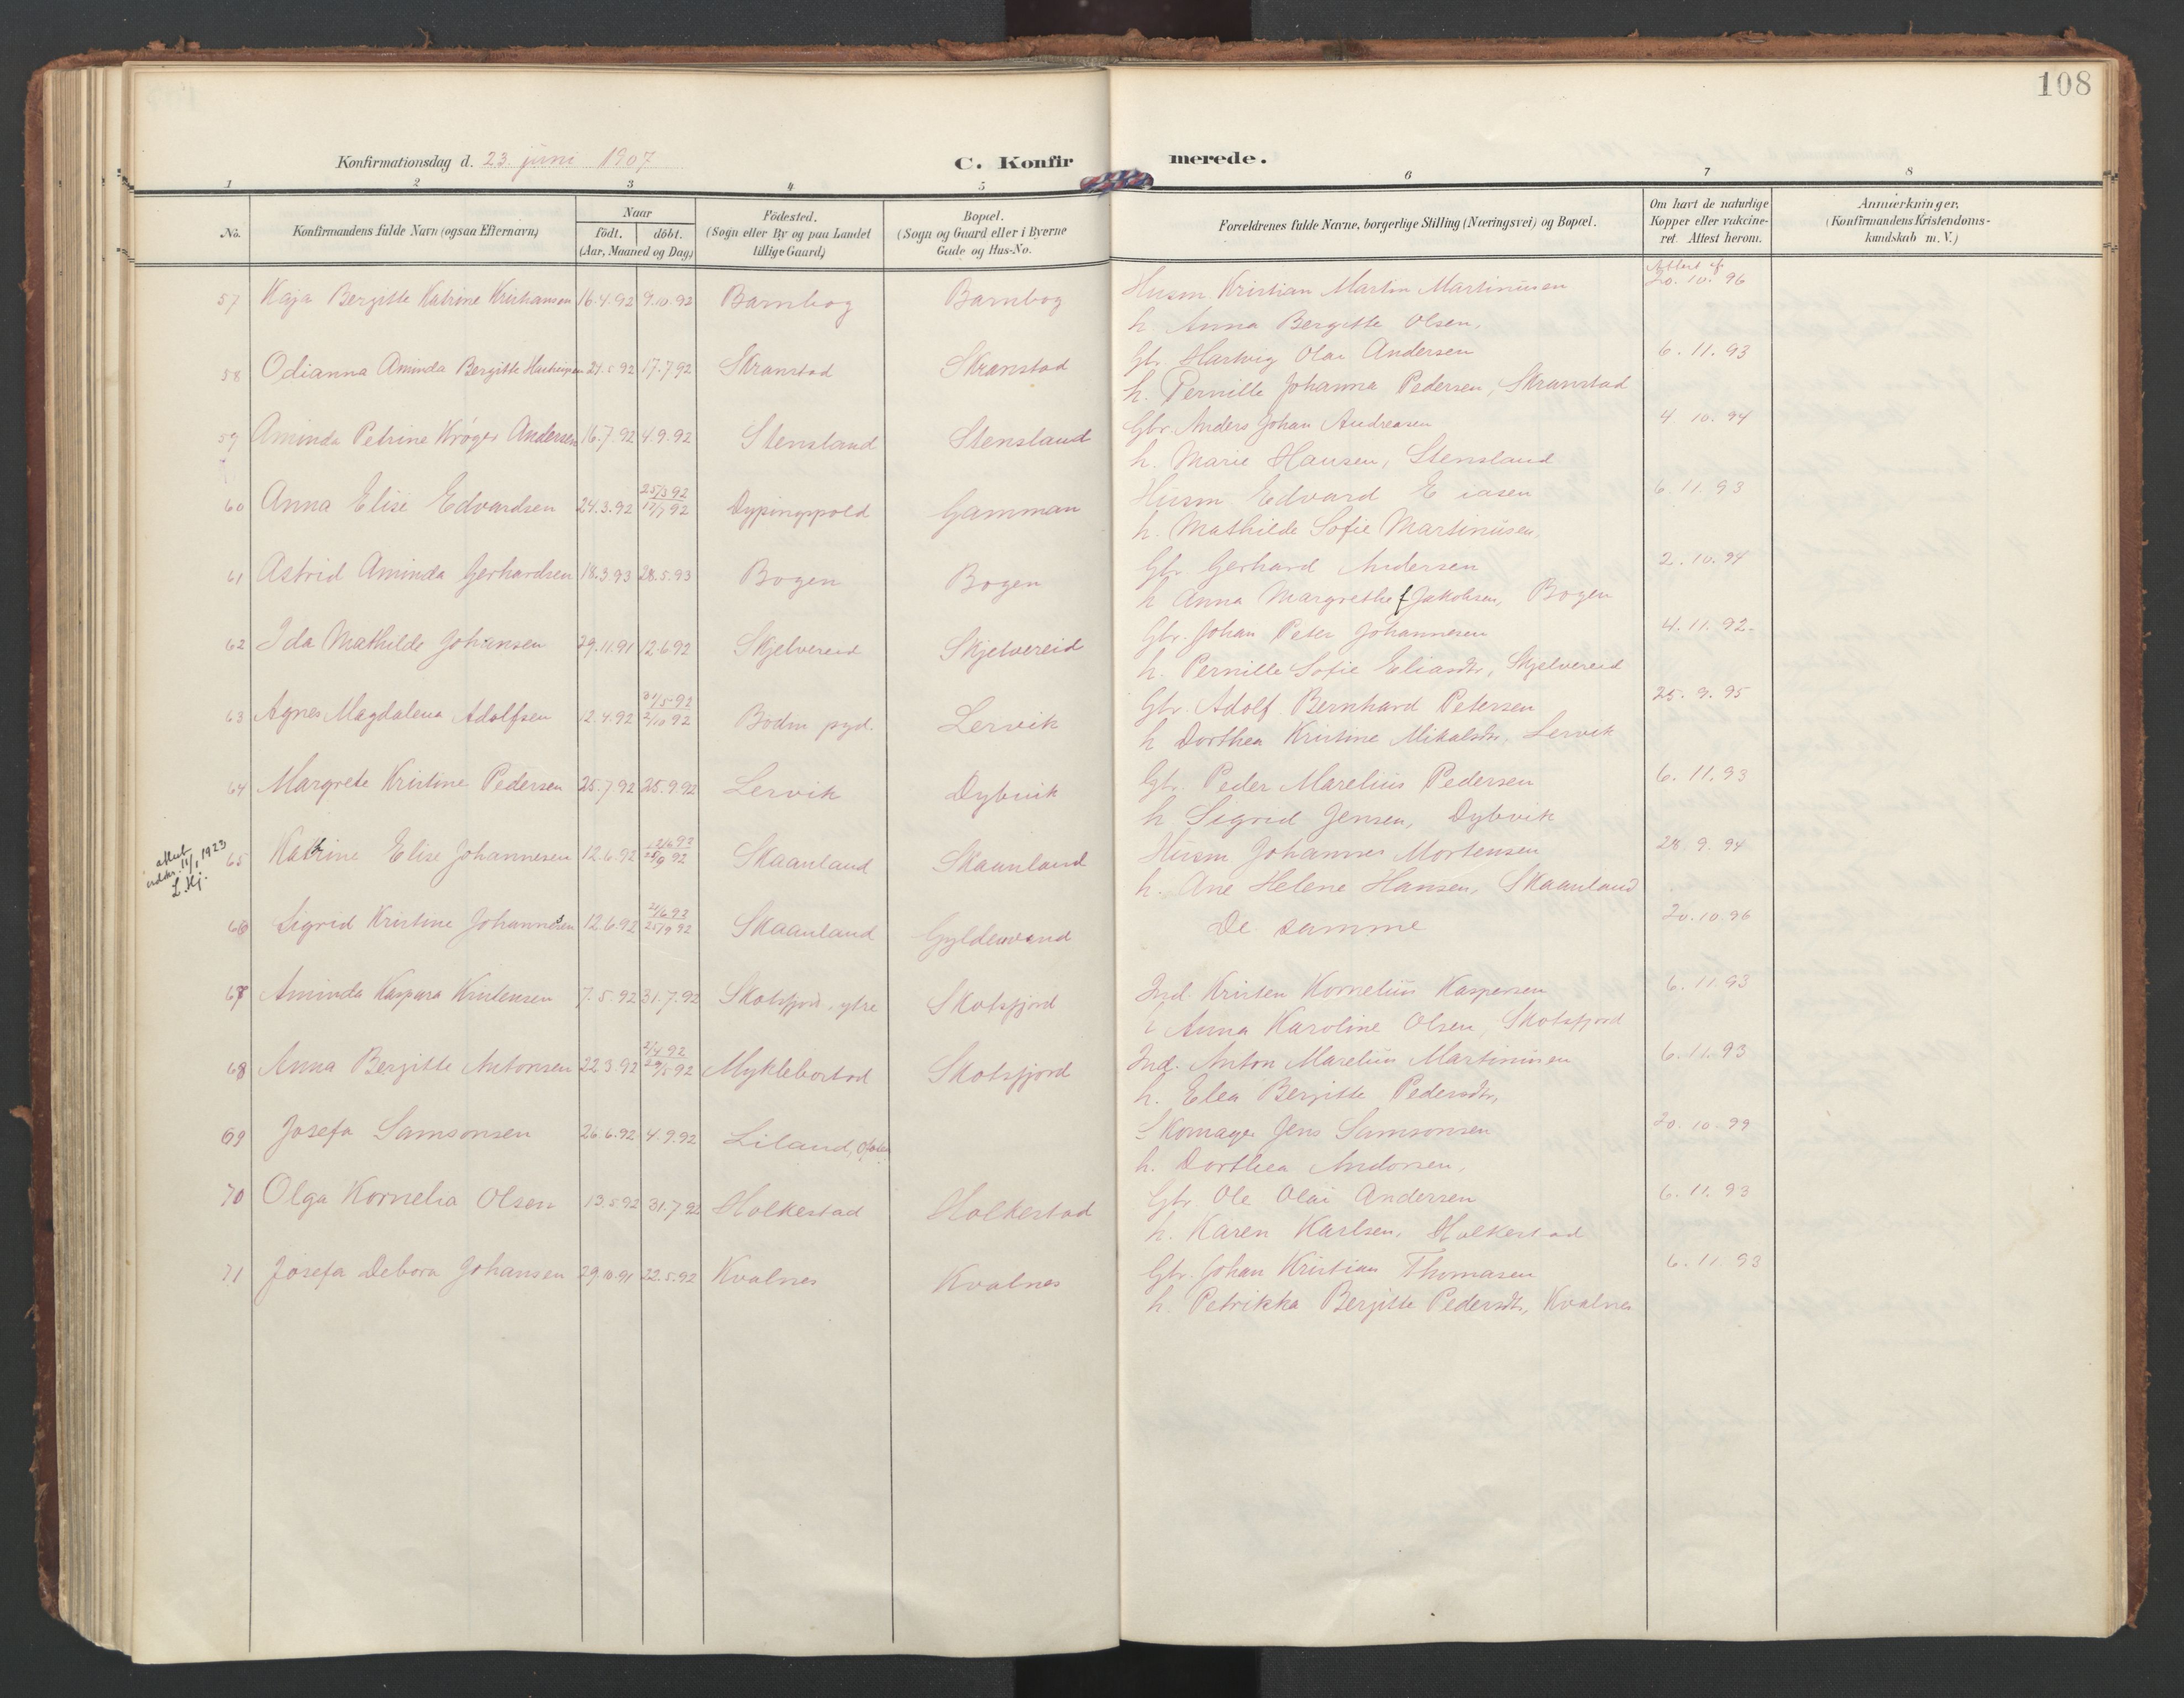 108
Konfirmationsdag d. 23. juni 1907
C. Konfirmerede.
1 2 3 4 5 6 7 8
No.
Konfirmandens fulde Navn (ogsaa Efternavn)
Naar
födt. döbt.
(Aar, Maaned og Dag)
Födested.
(Sogn eller By og paa Landet
tillige Gaard)
Bopæl.
(Sogn og Gaard eller i Byerne
Gade og Hus-No.
Forældrenes fulde Navne, borgerlige Stilling (Næringsvei) og Bopæl.
Om havt de naturlige
Kopper eller vakcine-
ret. Attest herom.
Anmærkninger,
(Konfirmandens Kristendoms-
kundskab m. V.)
57 Kaja Bergitte Katrine Kristiansen 16.4.92 9.10.92 Barnbog Barnbog Husm. Kristian Martin Martinusen 20.10.96
h Anna Bergitte Olsen,
58 Odianna Aminda Bergitte 21.5.92 17.7.92 Skranstad Skranstad Gbr. Hartvig Olai Andersen 6.11.93
h. Pernille Johanna Pedersen, Skranstad
59 Aminda Petrine Krøger Andersen 16.7.92 4.9.92 Stensland Stensland Gbr. Anders Johan Andreasen 4 10. 94
h. Marie Hansen, Stensland
60 Anna Elise Edvardsen 24.3.92 25/3 92 17/7 92 Gamman Husm Edvard 6.11.93
h. Mathilde Sofie Martinusen,
61 Astrid Aminda Gerhardsen 18.3.93 28.5.93 Bogen Bogen Gbr Gerhard Andersen 2.10.94
h Anna Margrethe f Jakobsen, Bogen
62 Ida Mathilde Johansen 29.11.91 12.6.92 Skjelvereid Skjelvereid Gbr. Johan Peter Johannesen 4.11.92.
h. Pernille Sofie Eliasdtr, Skjelvereid
63 Agnes Magdalena Adolfsen 12.4.92 31/5 92 2/10 92 Bodin pgd. Lervik Gbr. Adolf Bernhard Petersen 25.9.95
h Dorthea Kristine Mikalsdtr, Lervik
64 Margrete Kristine Pedersen 25.7.92 25.9.92 Lervik Dybvik Gbr. Peder Marelius Pedersen 6.11.93
h. Sigrid Jensen, Dybvik
attest
udskr. 11/1 1923
L. Hj.
65 Katrine Elise Johannesen 12.6.92 25/9 92 Skaanland Skaanland Husm Johannes Mortensen 28.9.94
h. Ane Helene Hansen, Skaanland
66 Sigrid Kristine Johannesen 12.6.92 25/9 92 Skaanland Gyldenvand De samme 20.10.96
67 Aminda Kaspara Kristensen 7.5.92 31.7.92 Skotsfjord, ytre Skotsfjord Ind. Kristen Kornelius Kaspersen 6.11.93
h Anna Karoline Olsen, Skotsfjord
68 Anna Bergitte Antonsen 22.3.92 2/4 92 29/5 92 Myklebostad Skotsfjord Ind. Anton Marelius Martinusen 6.11.93
h. Elea Bergitte Pedersdtr,
69 Josefa Samsonsen 26.6.92 4.9.92 Liland, Ofoten Skomager Jens Samsonsen 20.10.99
h. Dorthea Andorsen,
70 Olga Kornelia Olsen 13.5.92 31.7.92 Holkestad Holkestad Gbr Ole Olai Andersen 6.11.93
h. Karen Karlsen, Holkestad
71 Josefa Debora Johansen 29.10.91 22.5.92 Kvalnes Kvalnes Gbr. Johan Kristian Thomasen 6.11.93
h. Petrikka Bergitte Pedersdtr, Kvalnes